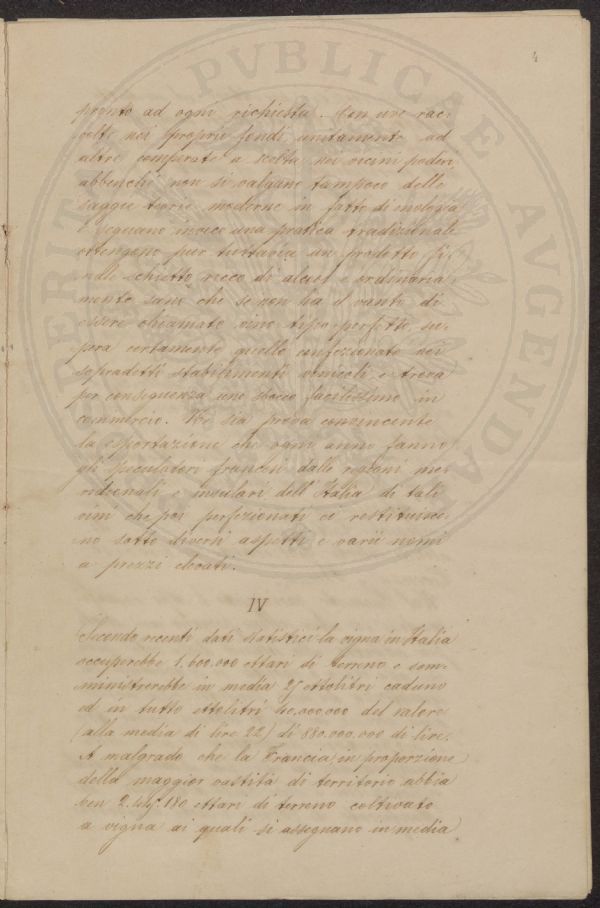 4
pronto ad ogni richiesta. Con uve rac-
colte nei proprii fondi unitamente ad
altre comperate a scelta nei vicini poderi
abbenchè non si valgano tampoco delle
saggie teorie moderne in fatto di enologia
e seguano invece una pratica tradizionale
ottengono pur tuttavia un prodotto fi-
nale schietto ricco di alcool e ordinaria-
mente sano che se non ha il vanto di
essere chiamato vino tipo perfetto su-
pera certamente quello confezionato nei
sopradetti stabilimenti vinicoli e trova
per conseguenza uno smercio facilissimo in
commercio. Ne sia prova convincente
la esportazione che ogni anno fanno
gli speculatori francesi dalle regioni me-
ridionali e insulari dell'Italia di tali
vini che poi perfezionati ci restituisco-
no sotto diversi aspetti e varii nomi
a prezzi elevati.
IV
Secondo recenti dati statistici la vigna in Italia
occuperebbe 1.600.000 ettari di terreno e som-
ministrerebbe in media 25 ettolitri caduno
ed in tutto ettolitri 40.000.000 del valore
(alla media di lire 22) di 880.000.000 di lire.
A malgrado che la Francia in proporzione
della maggior vastità di territorio abbia
ben 2. 180 ettari di terreno coltivato
a vigna ai quali si assegnano in media
PERITA PVBLICAE AVGENDAE